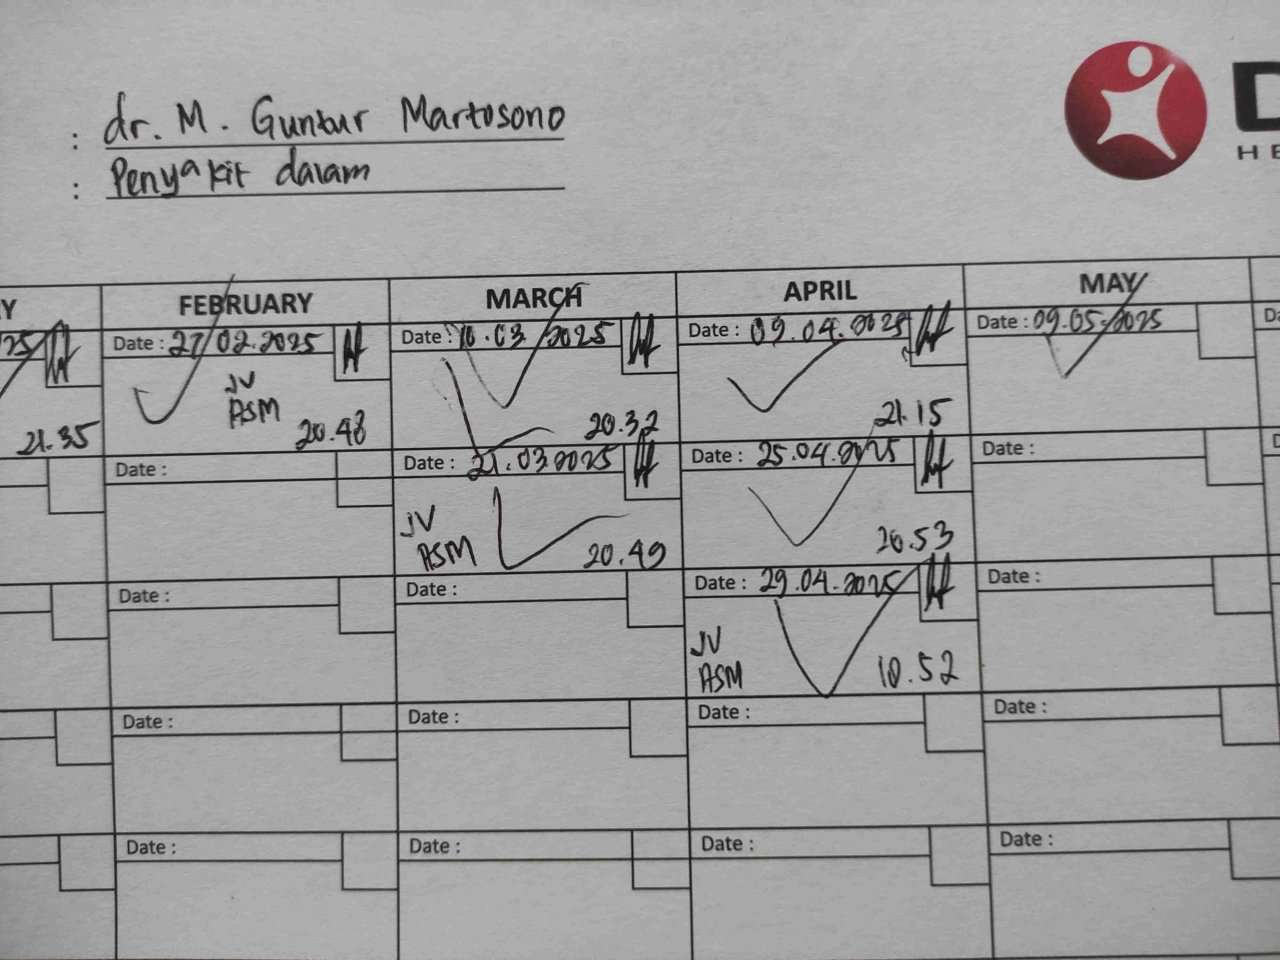 : dr. M. Guntur Martosono
: Penyakit dalam
D
HE
Y FEBRUARY MARCH APRIL MAY
25 Date : 27/02.2025 Date : 10.03/2025 Date : 09.04.2025 Date : 09.05.2025 Da
JV
ASM
21.35 20.48 20.32 21.15
Date : Date : 21.03.2025 Date : 25.04.2025 Date : D
JV
ASM 20.49 20.53
Date : Date : Date : 29.04.2025 Date :
JV
ASM 10.52
Date : Date : Date : Date :
Date : Date : Date : Date :